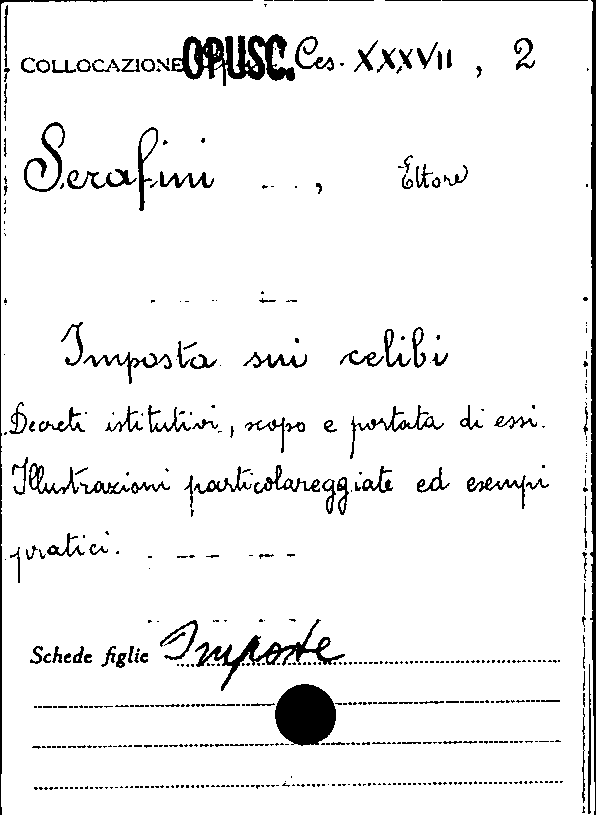 COLLOCAZIONE OPUSC. Ces. XXXVII, 2
Serafini , Ettore
Imposta sui celibi
Decreti istitutivi, scopo e portata di essi.
Illustrazioni particolareggiate ed esempi
pratici.
Schede figlie Imposte